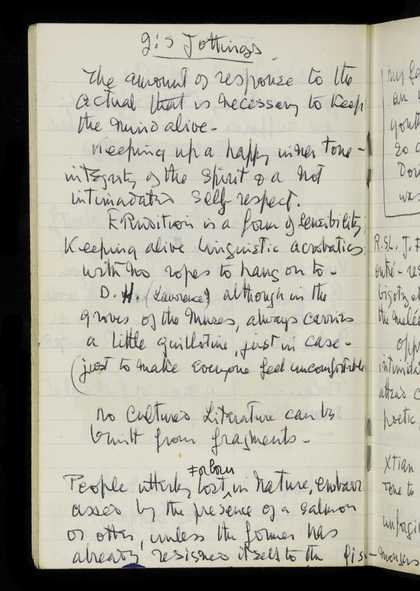 g's Jottings
The amount of response to the
actual that is necessary to keep
the mind alive -
Keeping up a happy inner tone -
integrity of the spirit & a not
intimidated self respect.
Erudition is a form of sensibility
Keeping alive linguistic acrobatics
with no ropes to hang on to -
D. H. (Lawrence) although in the
groves of the Muses, always carries
a little guillotine, just in case -
(just to make everyone feel uncomfortable
no cultured Literature can be
built from fragments -
Forlorn
People utterly lost in Nature, embarr
assed by the presence of a salmon
or otter, unless the former has
already resigned itself to the fish-
mongers
my
an
youth
so a
Don
was
R.SL. J.
bigoty
the
oppo
intimida
poetic,
Xtian
Tone to
unforgiv